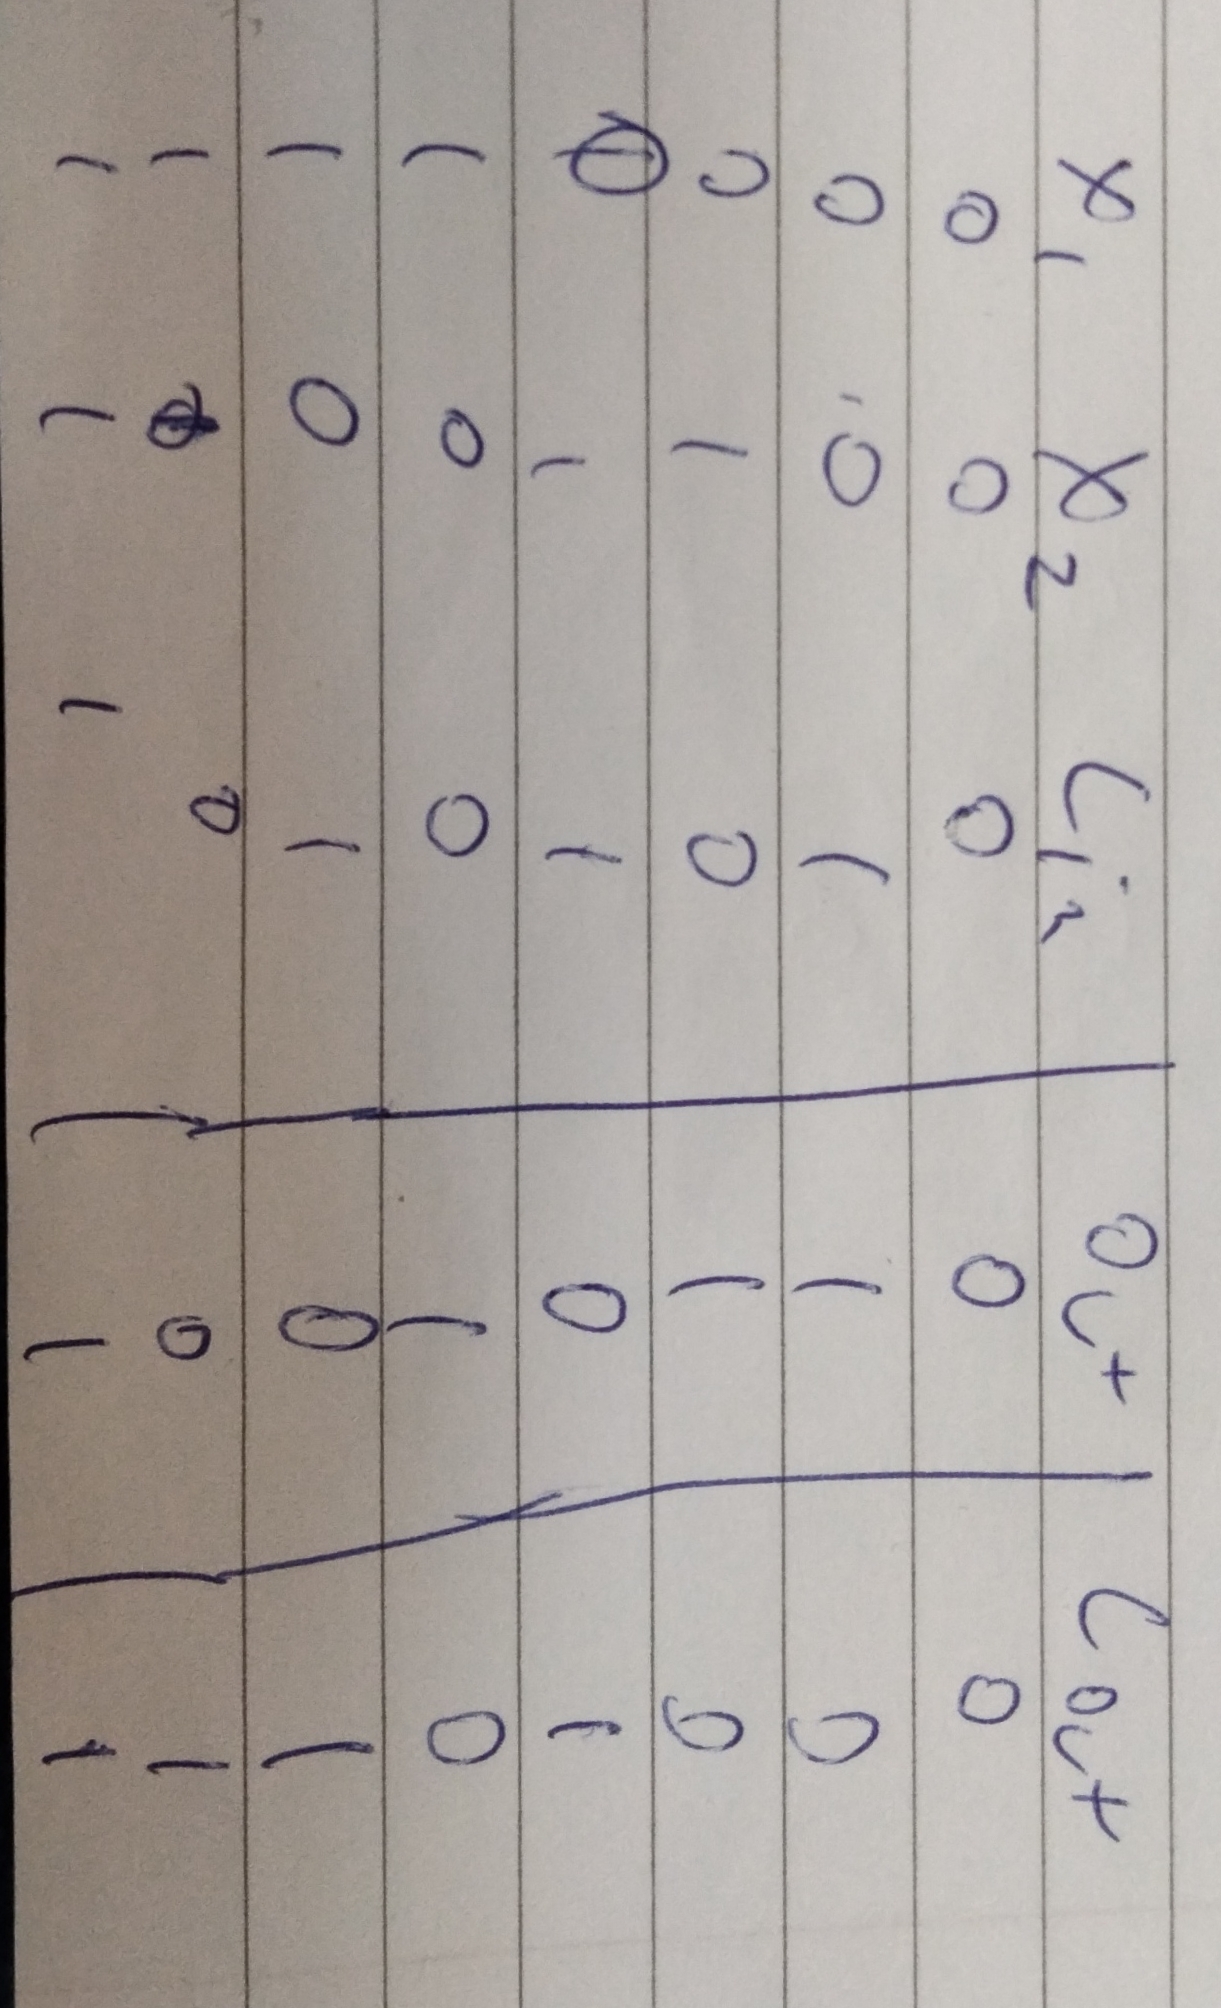 x1 x2 Cin out Cout
0 0 0 0 0
0 0 1 1 0
0 1 0 1 0
0 1 1 0 1
1 0 0 1 0
1 0 1 0 1
1 1 0 0 1
1 1 1 1 1